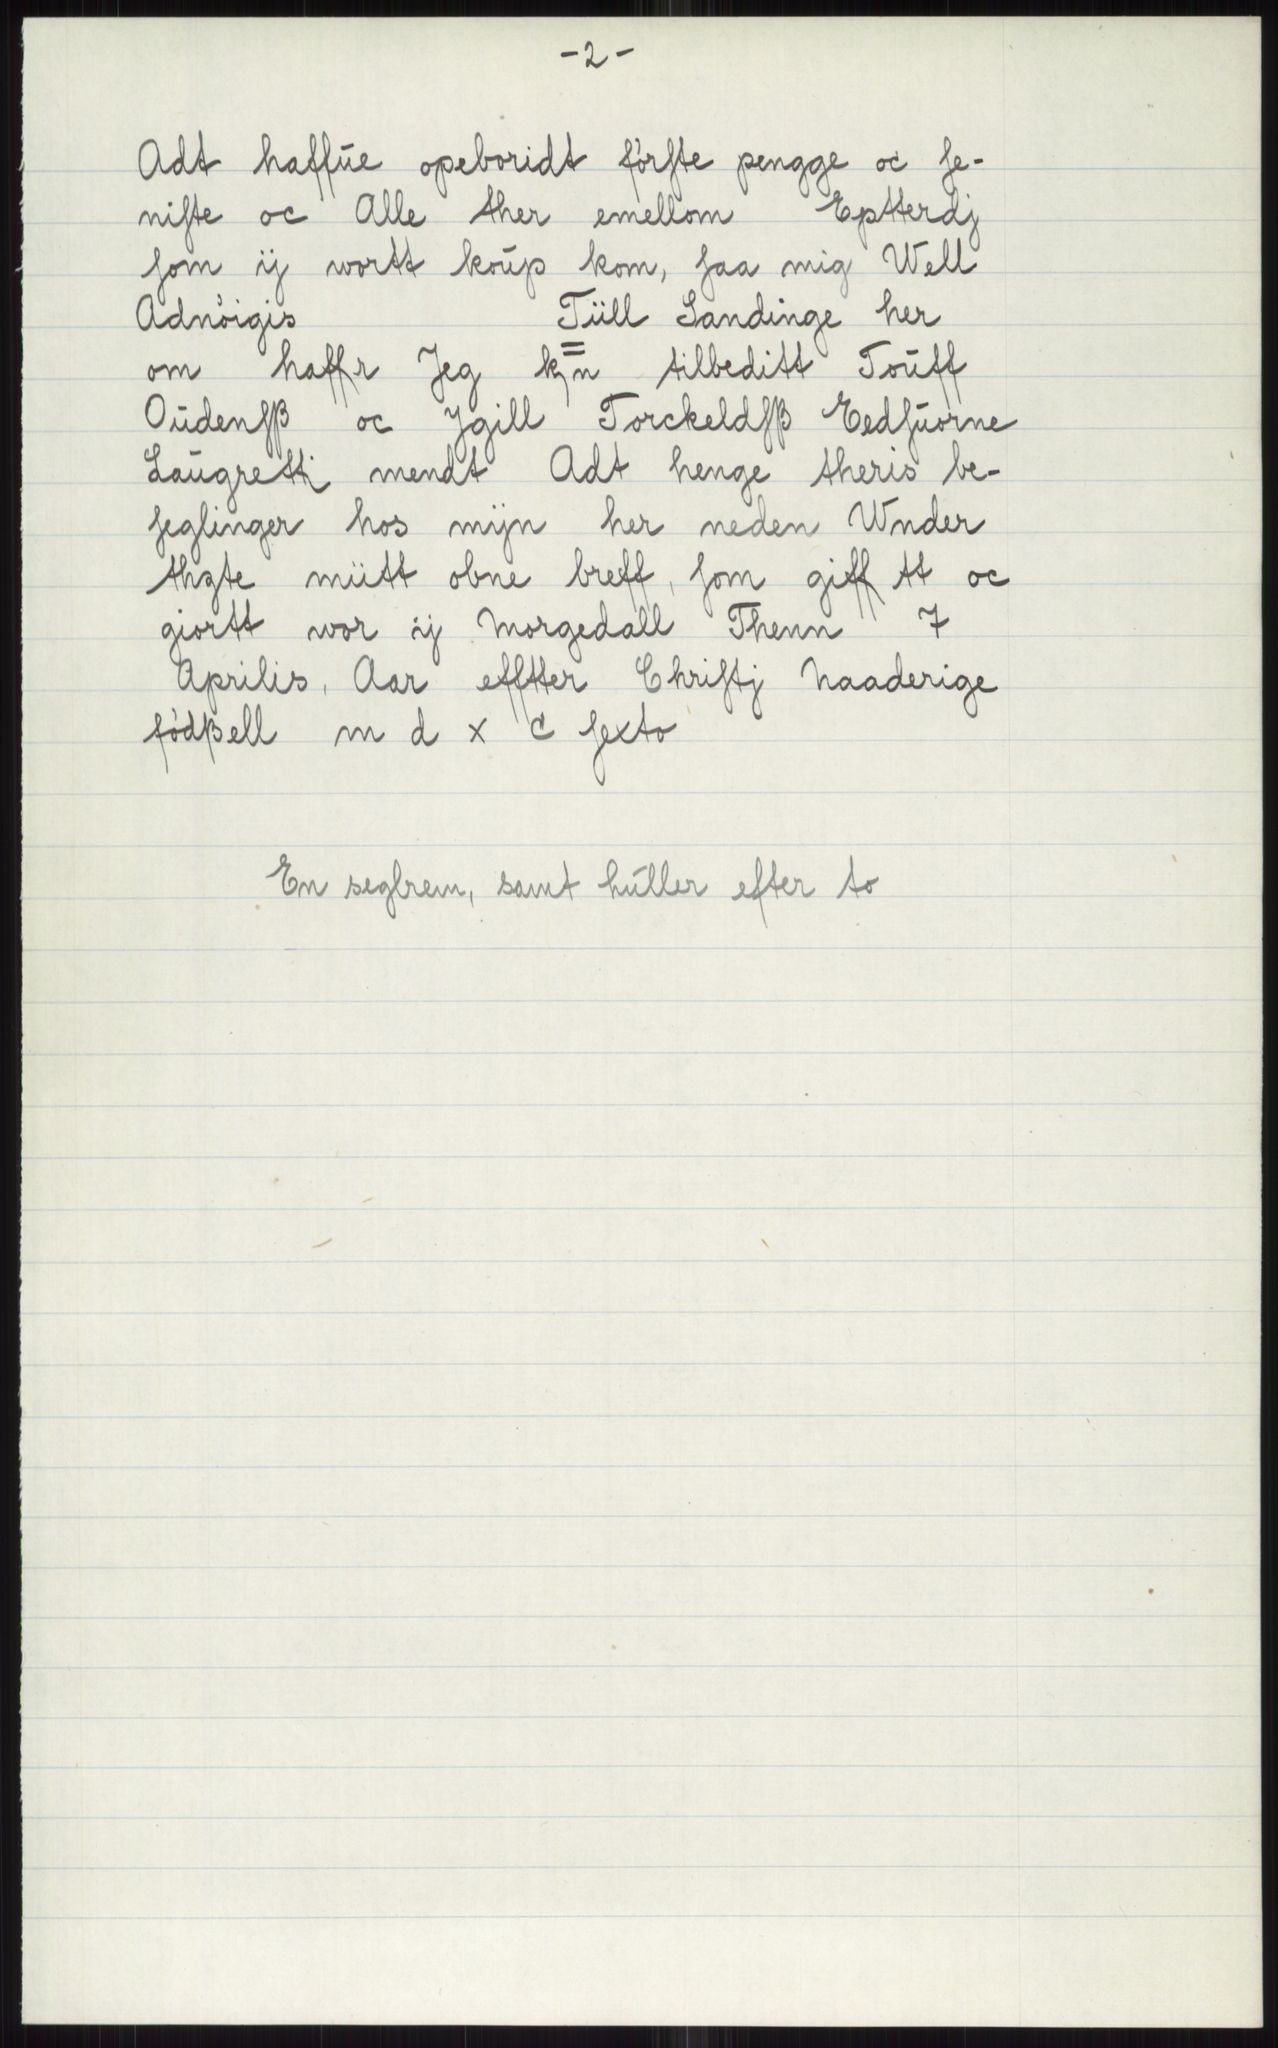 -2-
Adt haffúe opeboridt fórſte pengge oc ſe-
niſte oc Alle ther emellom Eptterdj
ſom ij wortt koúp kom, ſaa mig Well
Adnóigis Tüll Sandinge her
om haffr Jeg tilbeditt Toúff
Oúdenſß oc Jgill Torckeldſß Eedſúorne
Laúgrettj mendt Adt henge theris be-
ſeglinger hos mijn her neden Wnder
thzte mütt obne breff, ſom giff tt oc
giortt wor ij Morgedall Thenn 7
Aprilis, Aar efftter Chriſtj Naaderige
fódßell m d x c ſexto
En seglrem, samt húller efter to